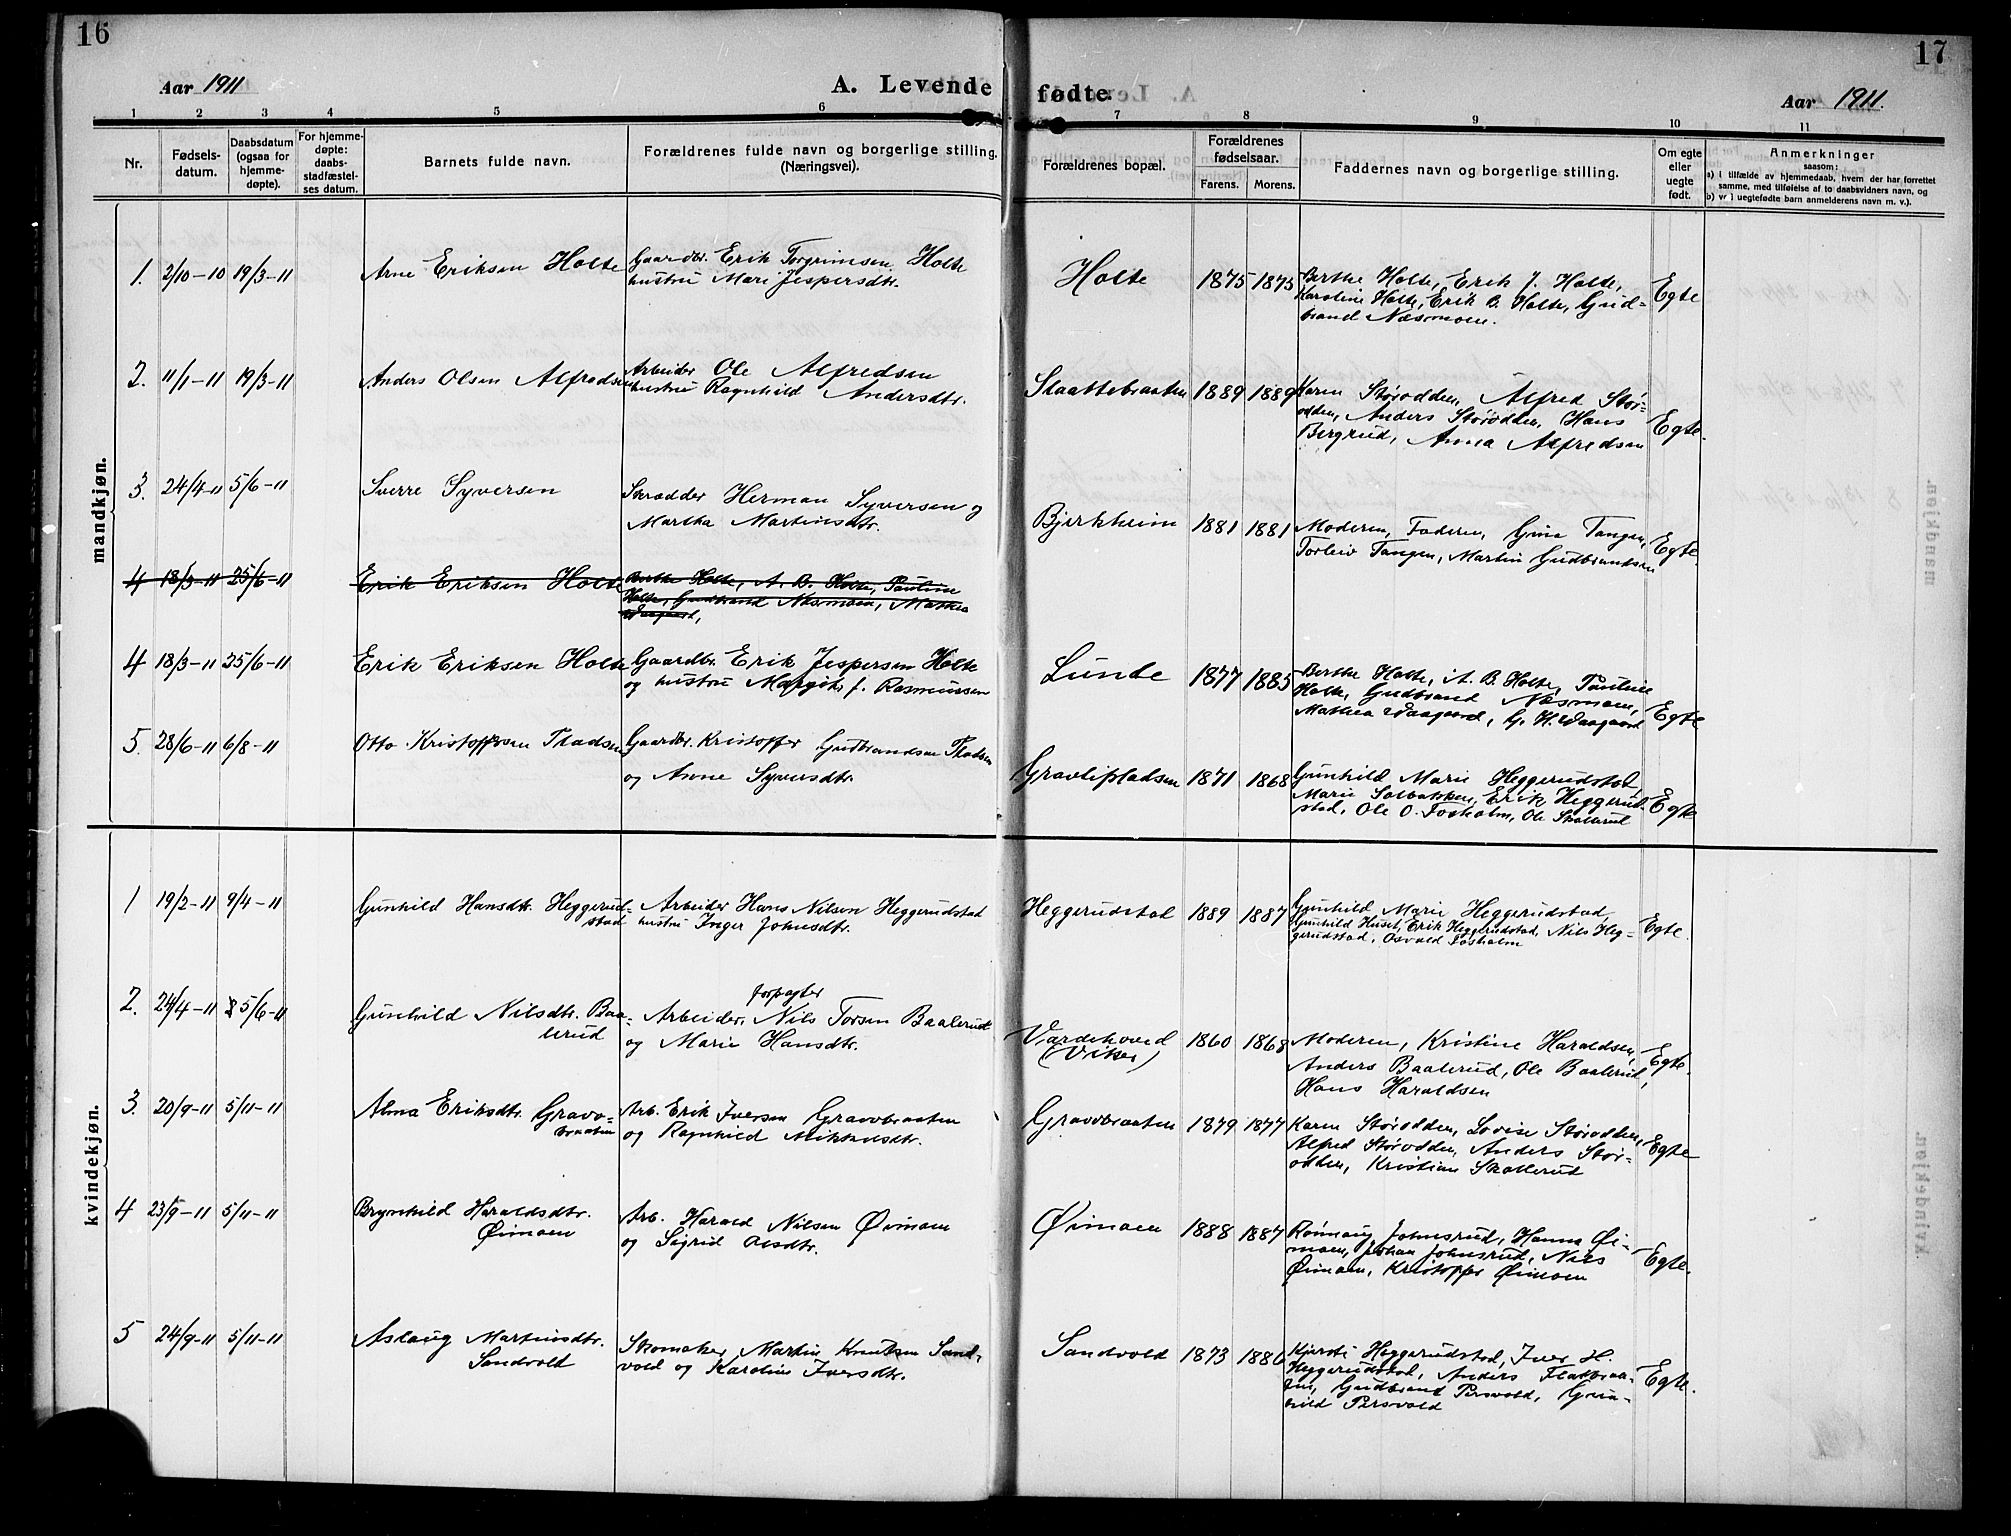 16
17
Aar 1911
A. Levende fødte.
Aar 1911.
1 2 3 4 5 6 7 8 9 10 11
Nr.
Fødsels-
datum.
Daabsdatum
(ogsaa for
hjemme-
døpte).
For hjemme-
døpte:
daabs-
stadfæstel-
ses datum.
Barnets fulde navn.
Forældrenes fulde navn og borgerlige stilling.
(Næringsvei).
Forældrenes bopæl.
Forældrenes
fødselsaar.
Farens. Morens.
Faddernes navn og borgerlige stilling.
Om egte
eller
uegte
født.
Anmerkninger
saasom:
a) i tilfælde av hjemmedaab, hvem der har forrettet
samme, med tilføielse af to daabsvidners navn, og
b) ved uegtefødte barn anmelderens navn m. v.).
mandkjøn.
1. 2/10-10 19/3-11 Arne Eriksen Holte
Gaardbr. Erik Torgrimsen Holte
hustru Mari Jespersdtr.
Holte 1875 1875
Berthe Holte, Erik J. Holte,
Karoline Holte, Erik B. Holte, Gud-
brand Næsmoen.
Egte
2. 11/1-11 19/3-11 Anders Olsen Alfredsen
Arbeider Ole Alfredsen
hustru Ragnhild Andersdtr.
Slaattebraaten 1889 1889
Karen Störodden, Alfred Stör-
odden, Anders Störodden, Hans
Bergrud, Anna Alfredsen
Egte.
3. 24/4-11 5/6-11 Sverre Syversen
Skrædder Herman Syversen og
Martha Martinsdtr.
Bjerkheim 1881 1881
Moderen, Faderen, Gina Tangen,
Torleiv Tangen, Martin Gudbrandsen
Egte.
4 18/3-11 25/6-11 Erik Eriksen Holte
Berthe Holte, A. B. Holte, Pauline
Holte, Gudbrand Næsmoen, Mathea
Waagaard,
4 18/3-11 25/6-11 Erik Eriksen Holte
Gaardbr. Erik Jespersen Holte
og hustru Margith f. Rasmussen
Lunde 1877 1885
Berthe Holte, A. B. Holte, Pauline
Holte, Gudbrand Næsmoen,
Mathea Waagaard, G. H. Waagaard
Egte
5. 28/6-11 6/8-11 Otto Kristoffersen Pladsen
Gaardbr. Kristoffer Gudbrandsen Pladsen
og Anne Syversdtr.
Gravlipladsen 1871 1868
Gunhild Marie Heggerudstad,
Marie Solbakken, Erik Heggerud-
stad, Ole O. Fosholm, Ole Skollerud
Egte
kvindekjøn.
1 19/2-11 9/4-11 Gunhild Hansdtr. Heggerud-
stad
Arbeider Hans Nilsen Heggerudstad
hustru Inger Johnsdtr.
Heggerudstad 1889 1887
Gunhild Marie Heggerudstad,
Gunhild Huset, Erik Heggerudstad, Nils Heg-
gerudstad, Osvald Fosholm
Egte.
2. 24/4-11 5/6-11 Gunhild Nilsdtr. Baa-
lerud
forpagter
Arbeider, Nils Torsen Baalerud
og Marie Hansdtr.
Vardehoved
(Viker) 1860 1868
Moderen, Kristine Haraldsen,
Anders Baalerud, Ole Baalerud,
Hans Haraldsen
Egte.
3. 20/9-11 5/11-11 Alma Eriksdtr. Gravv-
braaten
Arb. Erik Iversen Gravvbraaten
og Ragnhild Mikkelsdtr.
Gravvbraaten 1879 1877
Karen Störodden, Lovise Störodden,
Alfred Störodden, Anders Stör-
odden, Kristian Skollerud
Egte
4 23/9-11 5/11-11 Brynhild Haraldsdtr.
Øimoen
Arb. Harald Nilsen Øimoen
og Sigrid Olsdtr.
Øimoen 1888 1887
Rønnaug Johnsrud, Hanna Øi-
moen, Johan Johnsrud, Nils
Øimoen, Kristoffer Øimoen
Egte.
5 24/9-11 5/11-11 Aslaug Martinsdtr.
Sandvold
Skomaker Martin Knutsen Sand-
vold og Karoline Iversdtr.
Sandvold 1873 1886
Kjersti Heggerudstad, Iver H.
Heggerudstad, Anders Flatbraa-
ten, Gudbrand Persvold, Gun-
hild Persvold
Egte.